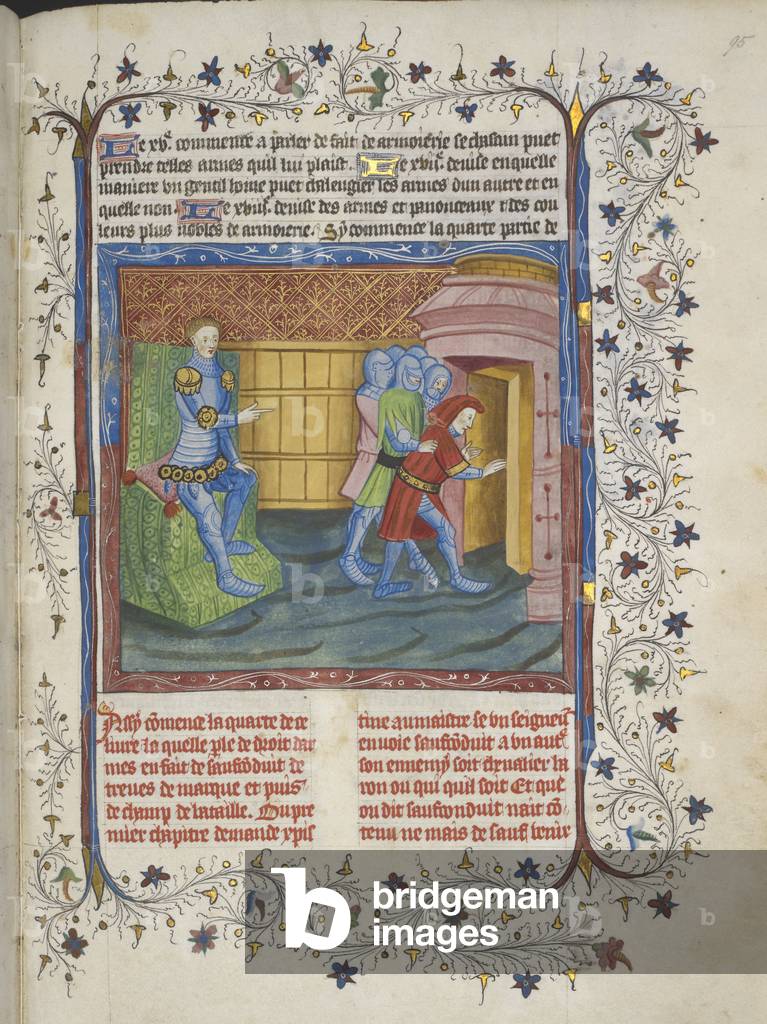 95
Le xvᵉ. commence a parler de fait de armoierie se chascun puet
prendre telles armes quil lui plaist. Le xviᵉ. devise en quelle
maniere un gentil home puet chalengier les armes dun autre et en
quelle non. Le xviiᵉ. devise des armes et panonceaux & des cou
leurs plus nobles de armoierie. Sy commence la quarte partie de
Assy cōmence la quarte de ce
livre la quelle ple de droit dar
mes en fait de saufcōduit de
treves de marque et puis
de champ de bataille. Ou pre
mier chapitre demande xpis
tine au maistre se un seigneur
envoie saufcōduit a un autre
son ennemy soit chevalier ba
ron ou qui quil soit Et que
ou dit saufconduit nait cō
tenu ne mais de sauf venir
b bridgeman
images